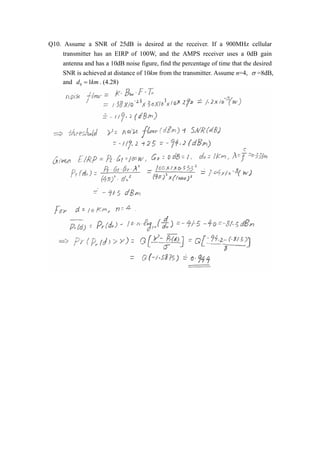 Q10. Assume a SNR of 25dB is desired at the receiver. If a 900MHz cellular
transmitter has an EIRP of 100W, and the AMPS receiver uses a 0dB gain
antenna and has a 10dB noise figure, find the percentage of time that the desired
SNR is achieved at distance of 10km from the transmitter. Assume n=4, σ=8dB,
and d₀ = 1km. (4.28)
noise floor = K·B_W·F·T₀
= 1.38×10⁻²³ × 30×10³ × 10 × 290 = 1.2×10⁻¹⁵ (W)
= -119.2 (dBm)
⇒ threshold γ = noise floor (dBm) + SNR (dB)
= -119.2 + 25 = -94.2 (dBm)
Given EIRP = Pt Gt = 100W, Gr = 0dB = 1. d₀ = 1km,
Pr(d₀) = Pt Gt Gr λ² / (4π)² · d₀²
= -41.5 dBm
For d = 10km, n=4
Pr(d) = Pr(d₀) - 10 n log₁₀ (d/d₀) = -41.5 - 40 = -81.5 dBm
⇒ Pr(Pr(d) > γ) = Q[γ - Pr(d) / σ] = Q[-94.2-(-81.5) / 8]
= Q(-1.5875) = 0.944